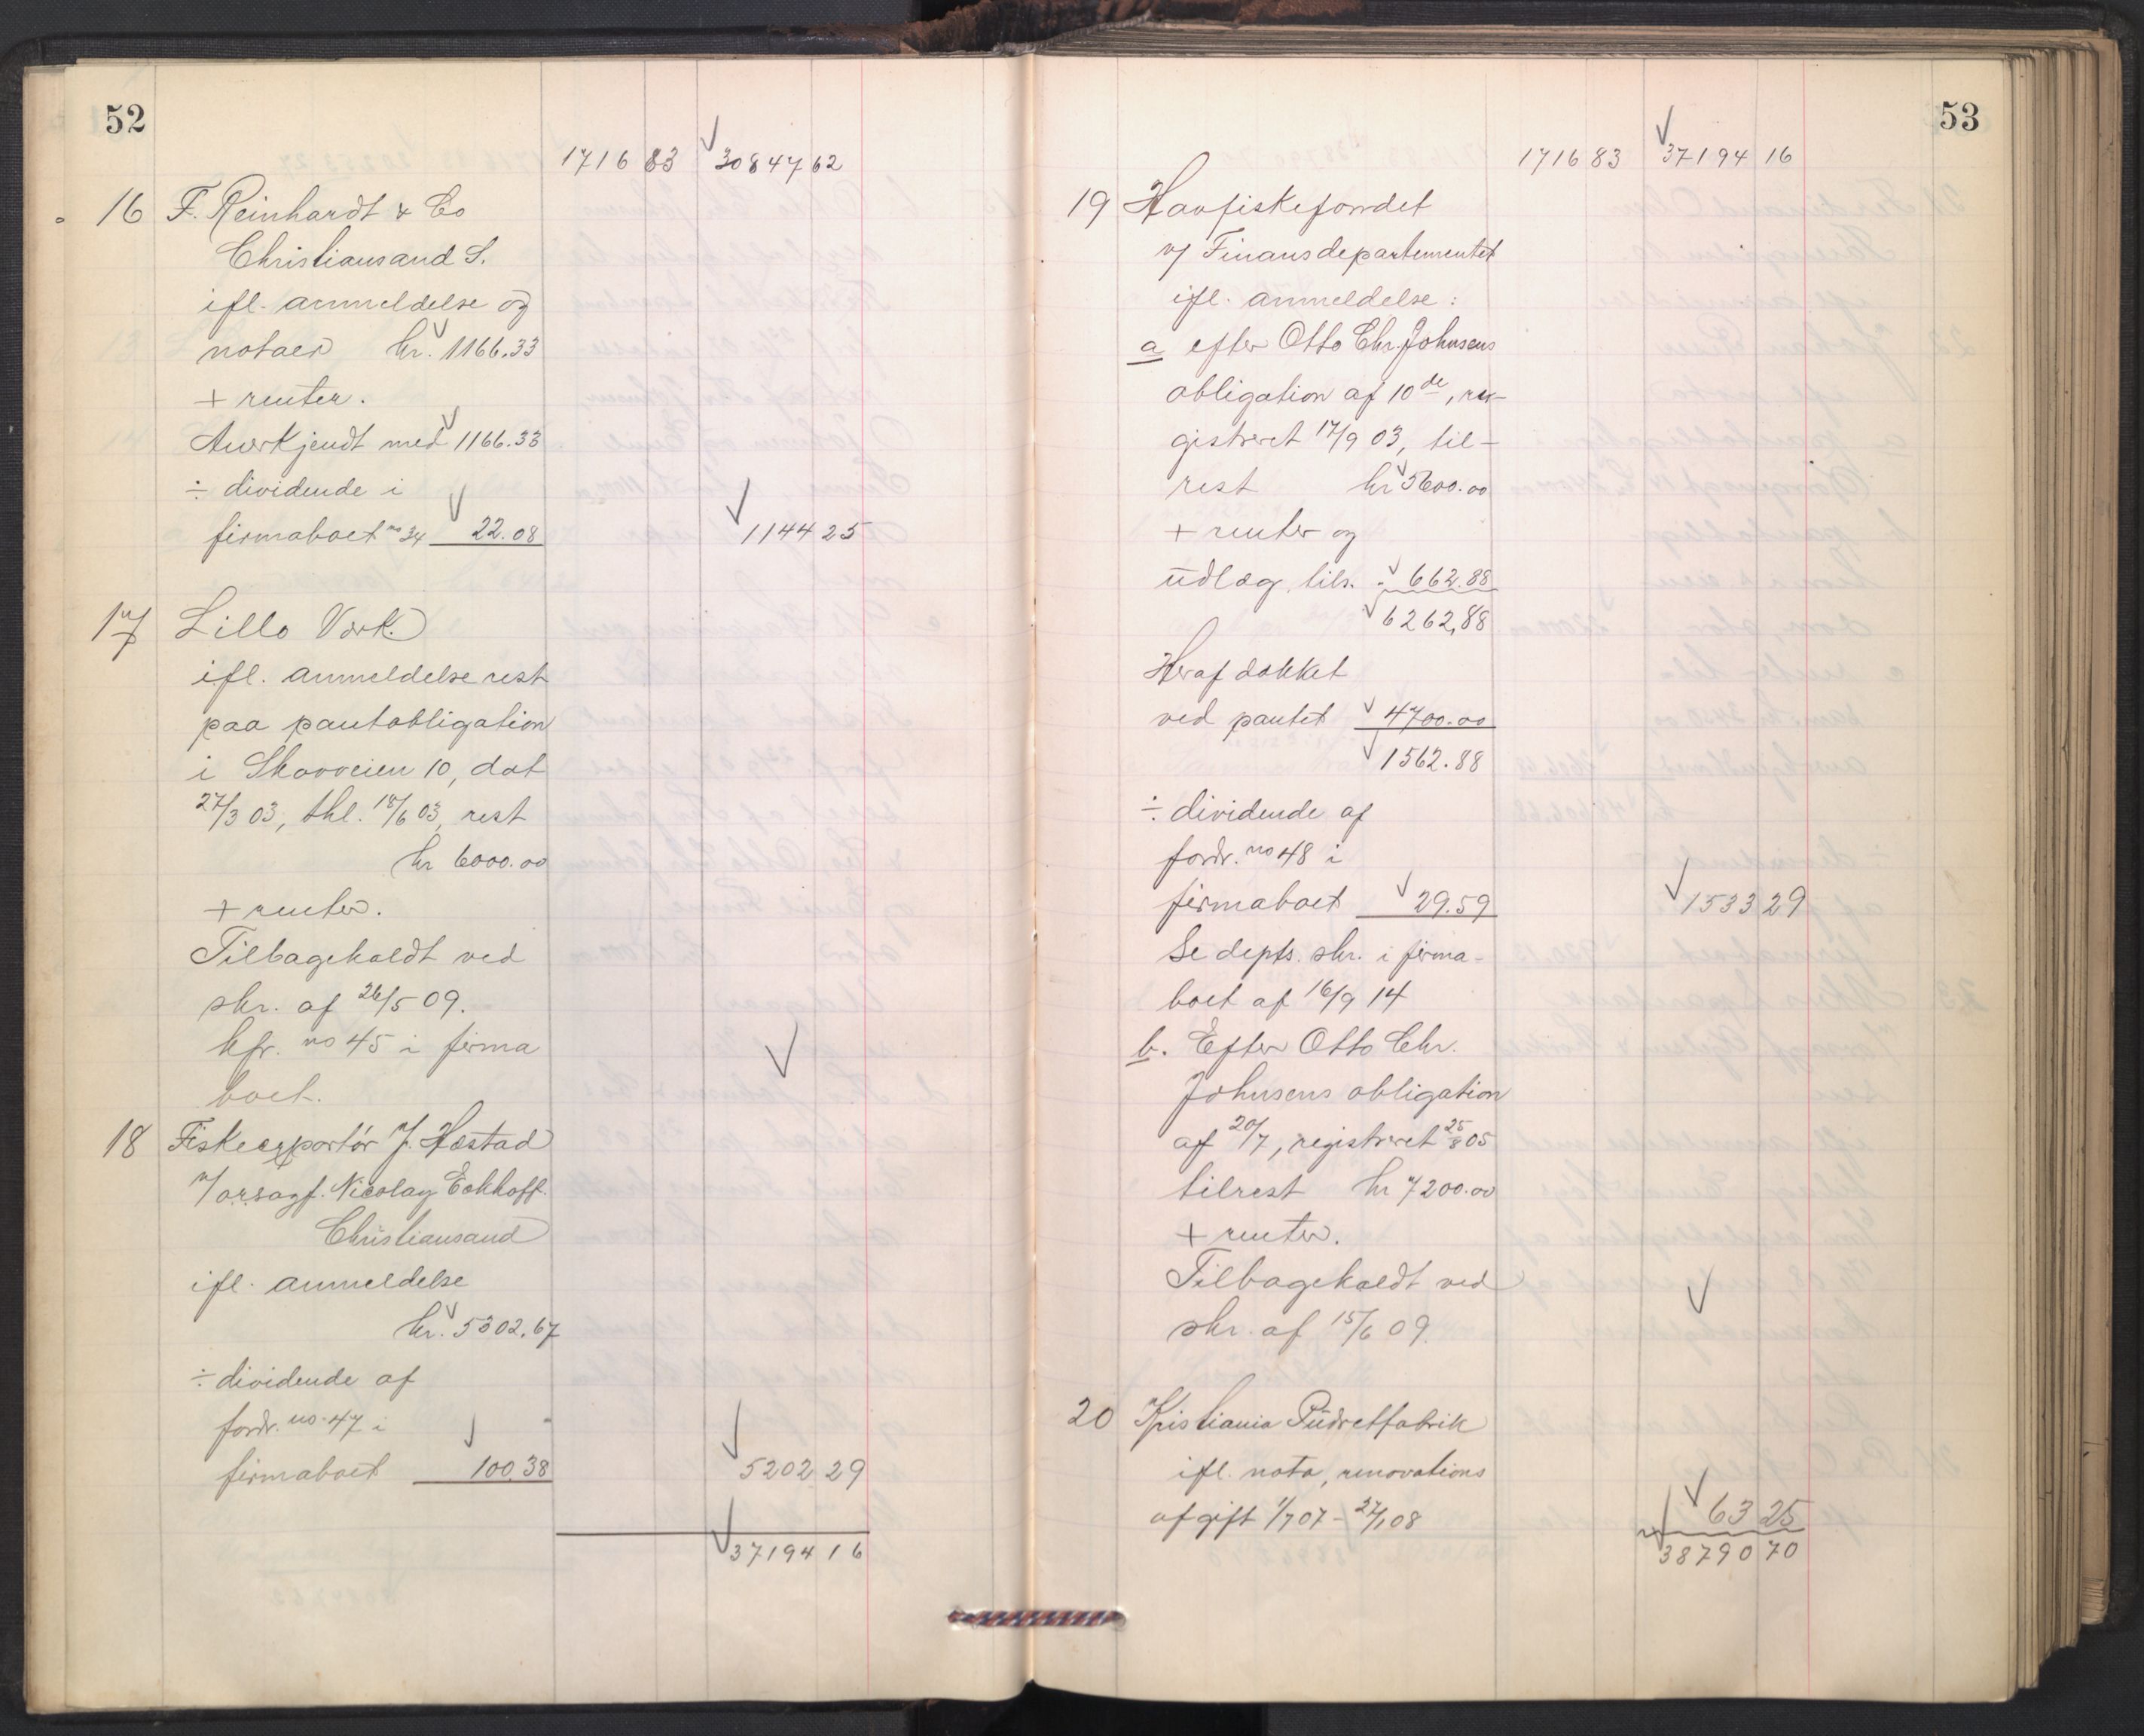 52
1716 83 30847 62
16 F. Reinhardt & Co
Christiansand S.
ifl. anmeldelse og
notaer kr. 1166.33
+ renter.
Anerkjendt med 1166.33
÷ dividende i
firmaboet no 34 22.08 1144 25
17 Lillo Værk.
ifl. anmeldelse rest
paa pantobligation
i Skovveien 10, dat
27/3 03, thl. 18/6 03, rest
kr 6000.00
+ renter.
Tilbagekaldt ved
skr. af 26/5 09.
kfr. no 45 i firma
boet.
18 Fiskeexportør J. Hæstad
v/ o.r.sagf. Nicolay Eckhoff.
Christiansand
ifl. anmeldelse
kr. 5302.67
÷ dividende af
fordr. no 47 i
firmaboet 100.38 5202 29
37194 16
53
1716 83 37194 16
19 Havfiskefondet
v/ Finansdepartementet
ifl. anmeldelse:
a efter Otto Chr. Johnsens
obligation af 10de, re-
gistreret 17/9 03, til-
rest kr 5600.00
+ renter og
udlæg tils. - 662.88
6262,88
Heraf dækket
ved pantet 4700.00
1562.88
÷ dividende af
fordr. no 48 i
firmaboet 29.59 1533 29
Se depts. skr. i firma-
boet af 16/9 14
b. Efter Otto Chr.
Johnsens obligation
af 20/7, registreret 25/8 05
tilrest kr 7200.00
+ renter.
Tilbagekaldt ved
skr. af 15/6 09.
20 Kristiania Pudretfabrik
ifl. nota, renovations
afgift 1/7 07 - 27/1 08 63 25
38790 70